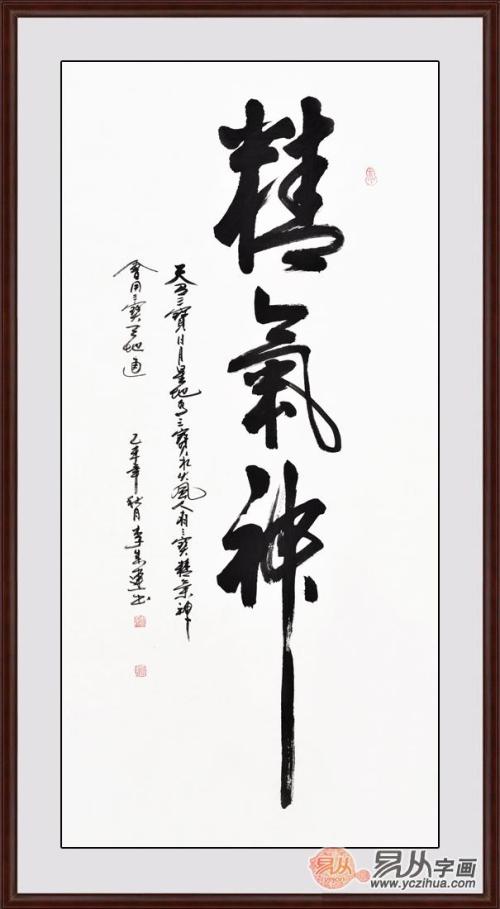 精氣神
天有三寶日月星地有三寶水火風人有三寶精氣神
會用三寶天地通
乙未年秋月李成連书
易从字画
www.yczihua.com